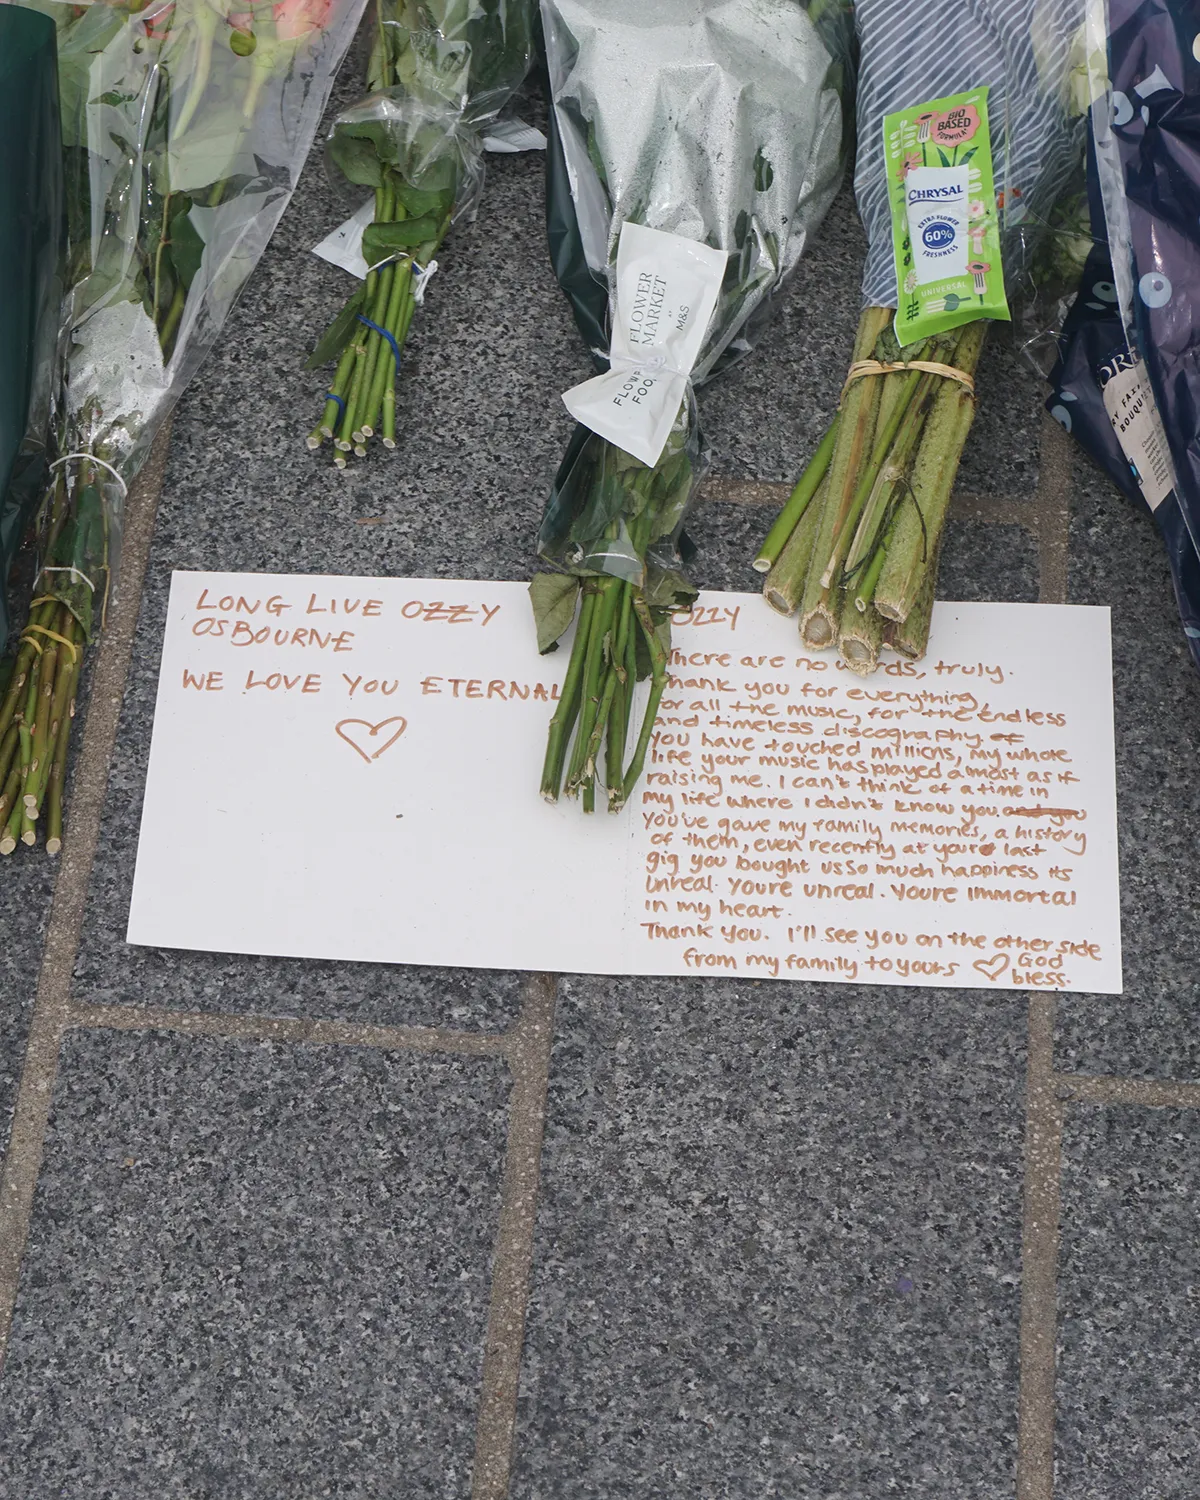 BIO
BASED
FORMULA*
CHRYSAL
EXTRA FLOWER
60%
FRESHNESS
UNIVERSAL
FLOWER
MARKET
BY
M&S
FLOW
FOO
BOUQU
LONG LIVE OZZY
OSBOURNE
WE LOVE YOU ETERNAL
OZZY
There are no words, truly.
Thank you for everything,
for all the music, for the endless
and timeless discography. of
you have touched millions, my whole
life your music has played almost as if
raising me. I can't think of a time in
my life where I didn't know you. and you
You've gave my family memories, a history
of them, even recently at your last
gig you bought us so much happiness its
Unreal. Youre unreal. Youre immortal
in my heart.
Thank You. I'll see you on the other side
from my family to yours God
bless.